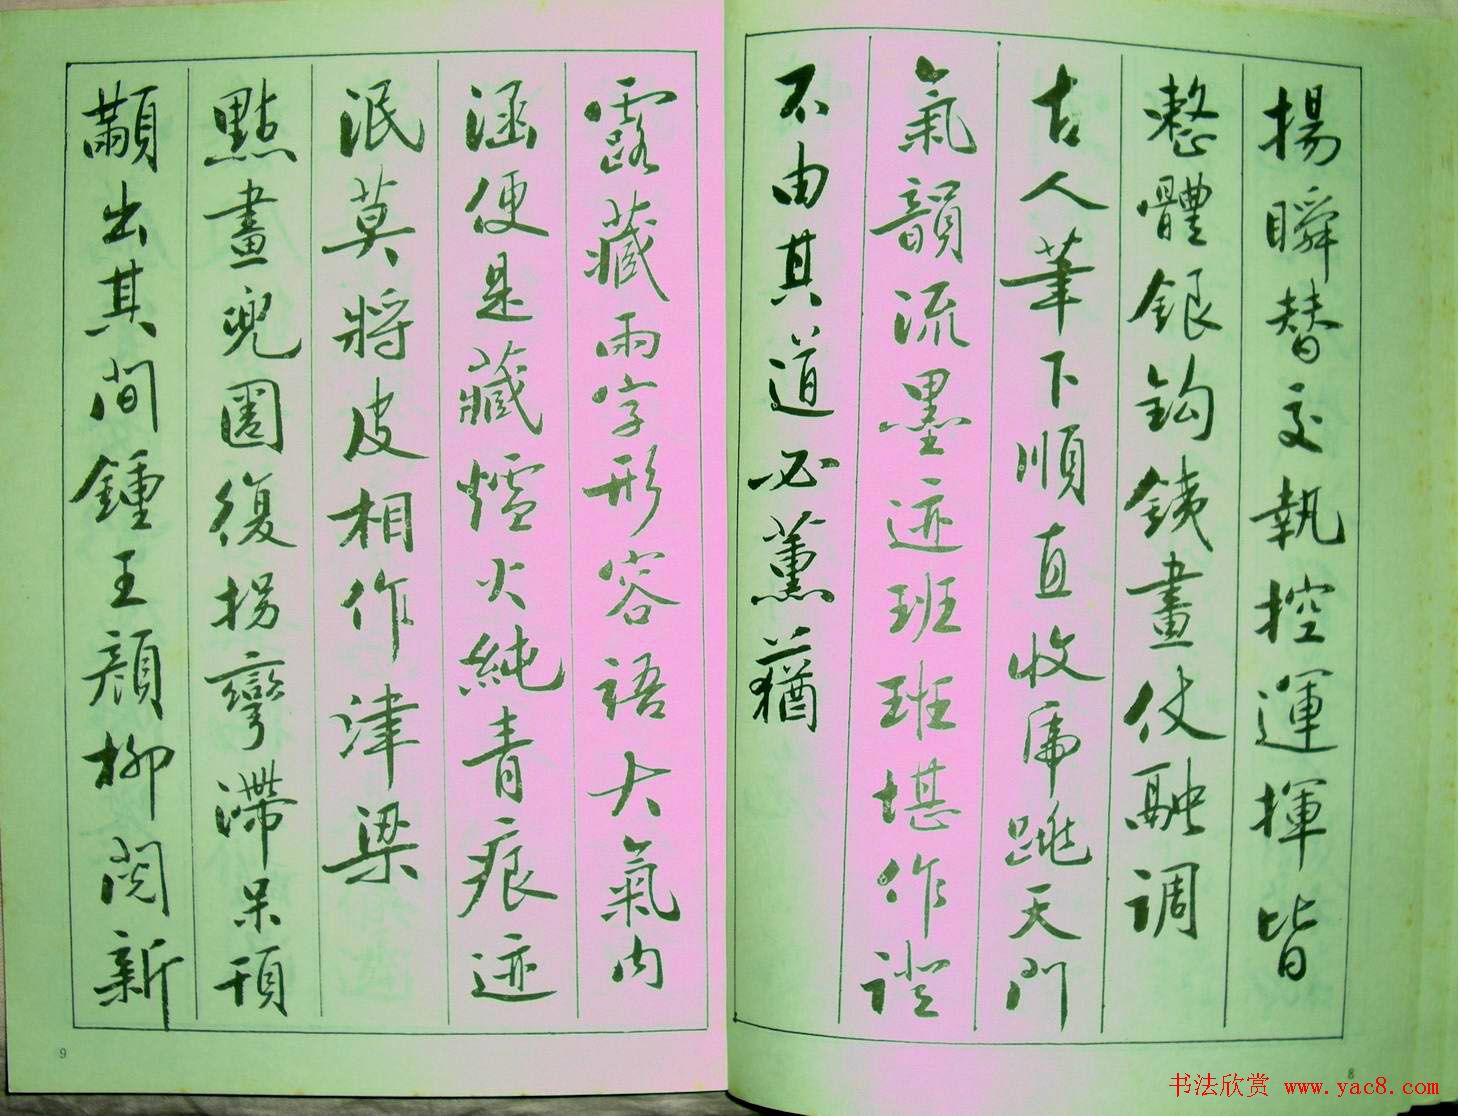 揚瞬替交執控運揮皆
整體銀鈎鐵畫仗融调
古人筆下順直收虎跳天門
氣韻流墨迹班班堪作證
不由其道必薰蕕
露藏兩字形容語大氣內
涵便是藏爐火純青痕迹
泯莫將皮相作津梁
點畫兜圈復拐彎滯呆頇
顢出其間鍾王顏柳閱新
9
8
书法欣赏 www.yac8.com